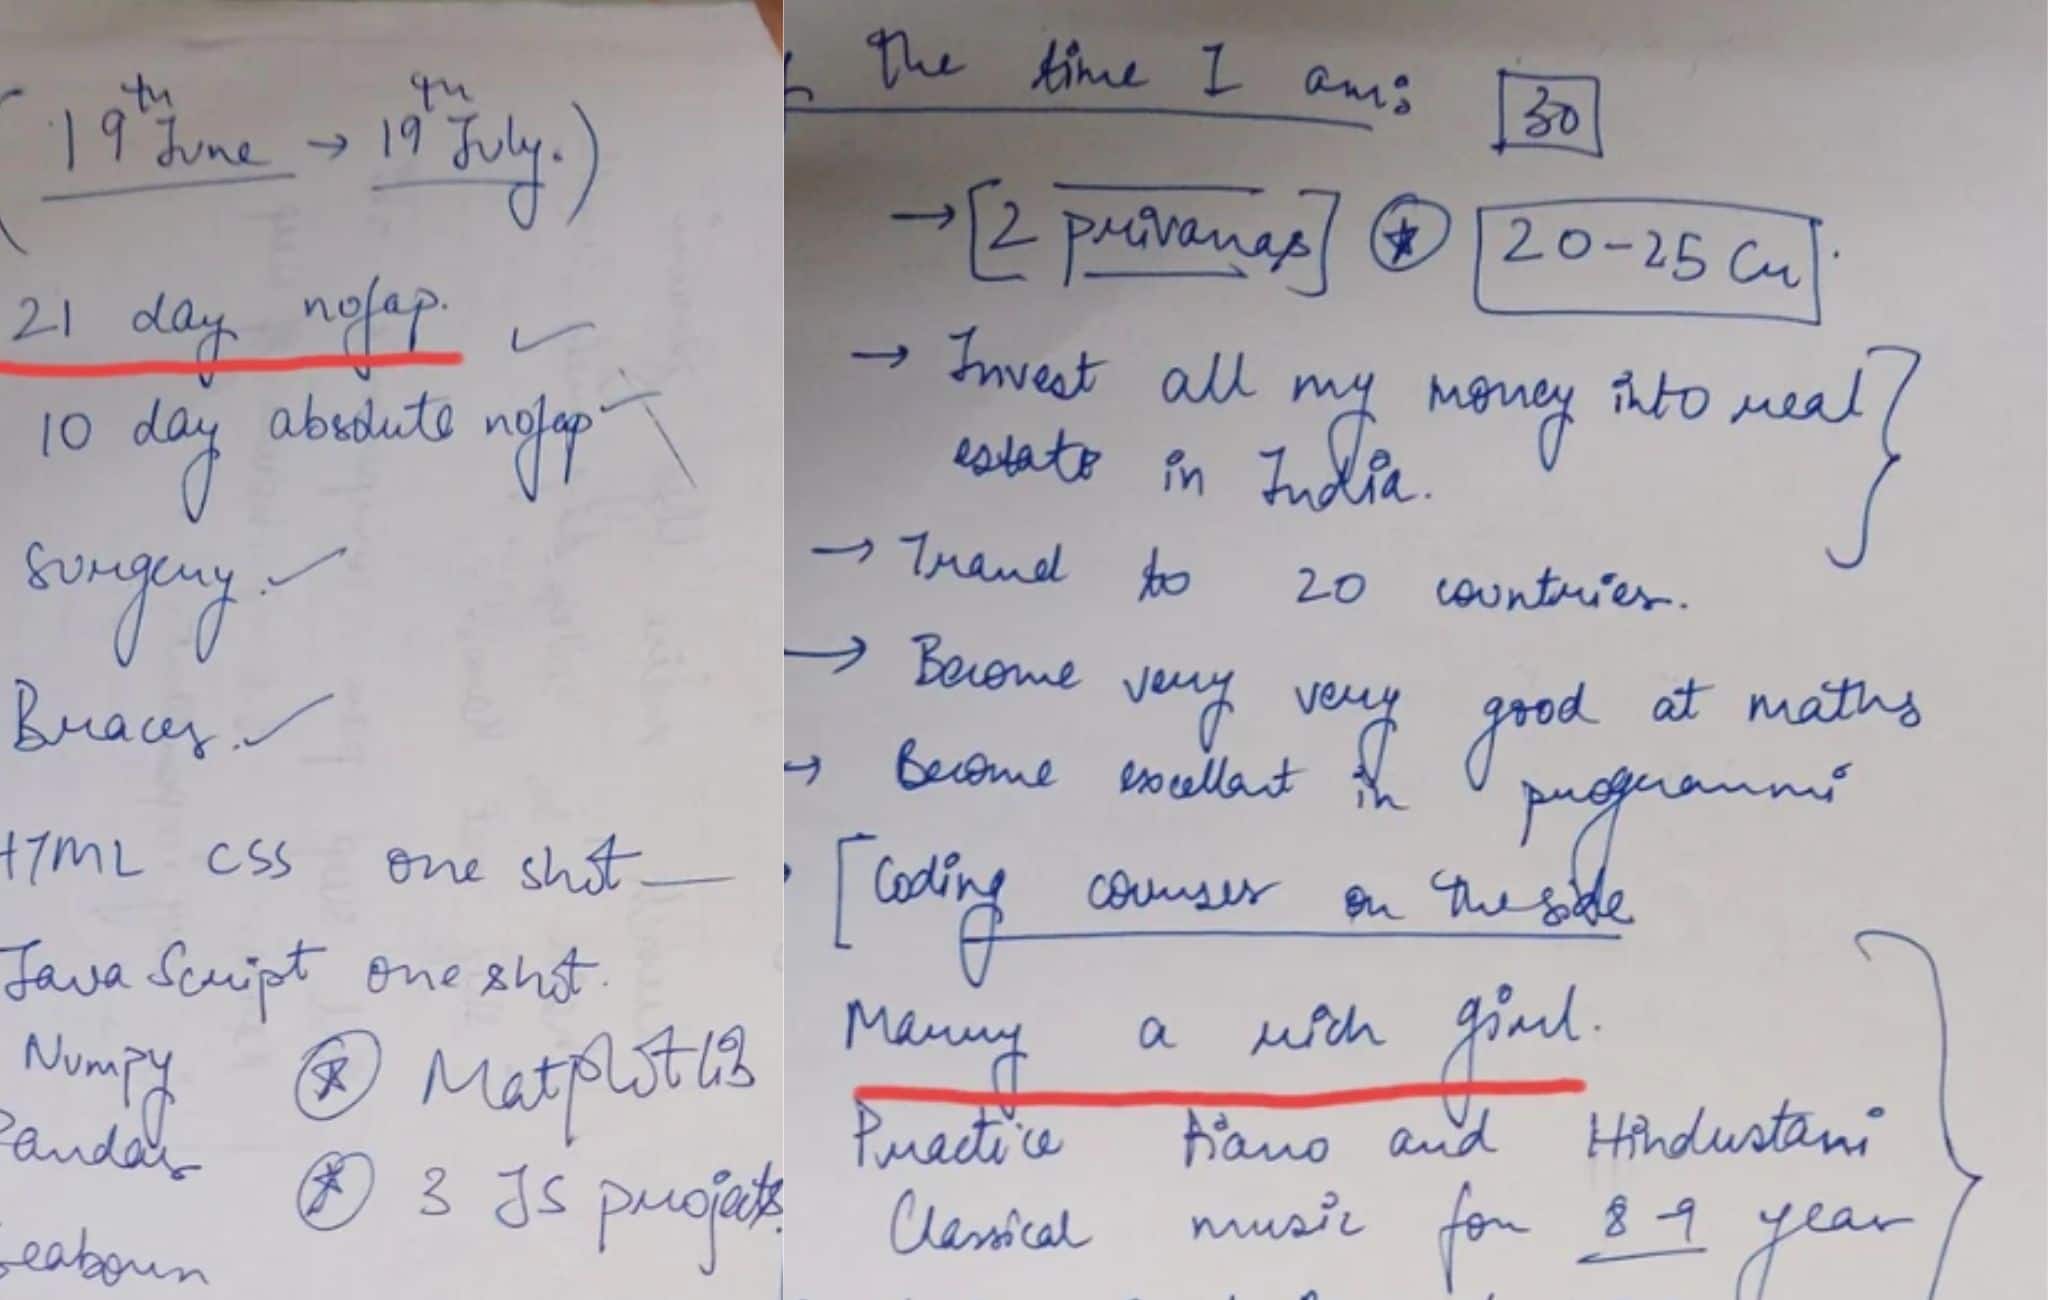 (19th June → 19th July.)
21 day nofap. ✓
10 day absolute nofap
Surgery. ✓
Braces. ✓
HTML CSS one shot
JavaScript one shot.
Numpy
Matplotlib
Pandas
3 JS projects
Seaborn
the time I am: 30
→ [2 privanas] 20-25 Cr.
→ Invest all my money into real
estate in India.
→ Travel to 20 countries.
→ Become very very good at maths
→ Become excellent in programmi
[Coding courses on the side
Marry a rich girl.
Practice Piano and Hindustani
Classical music for 8-9 year